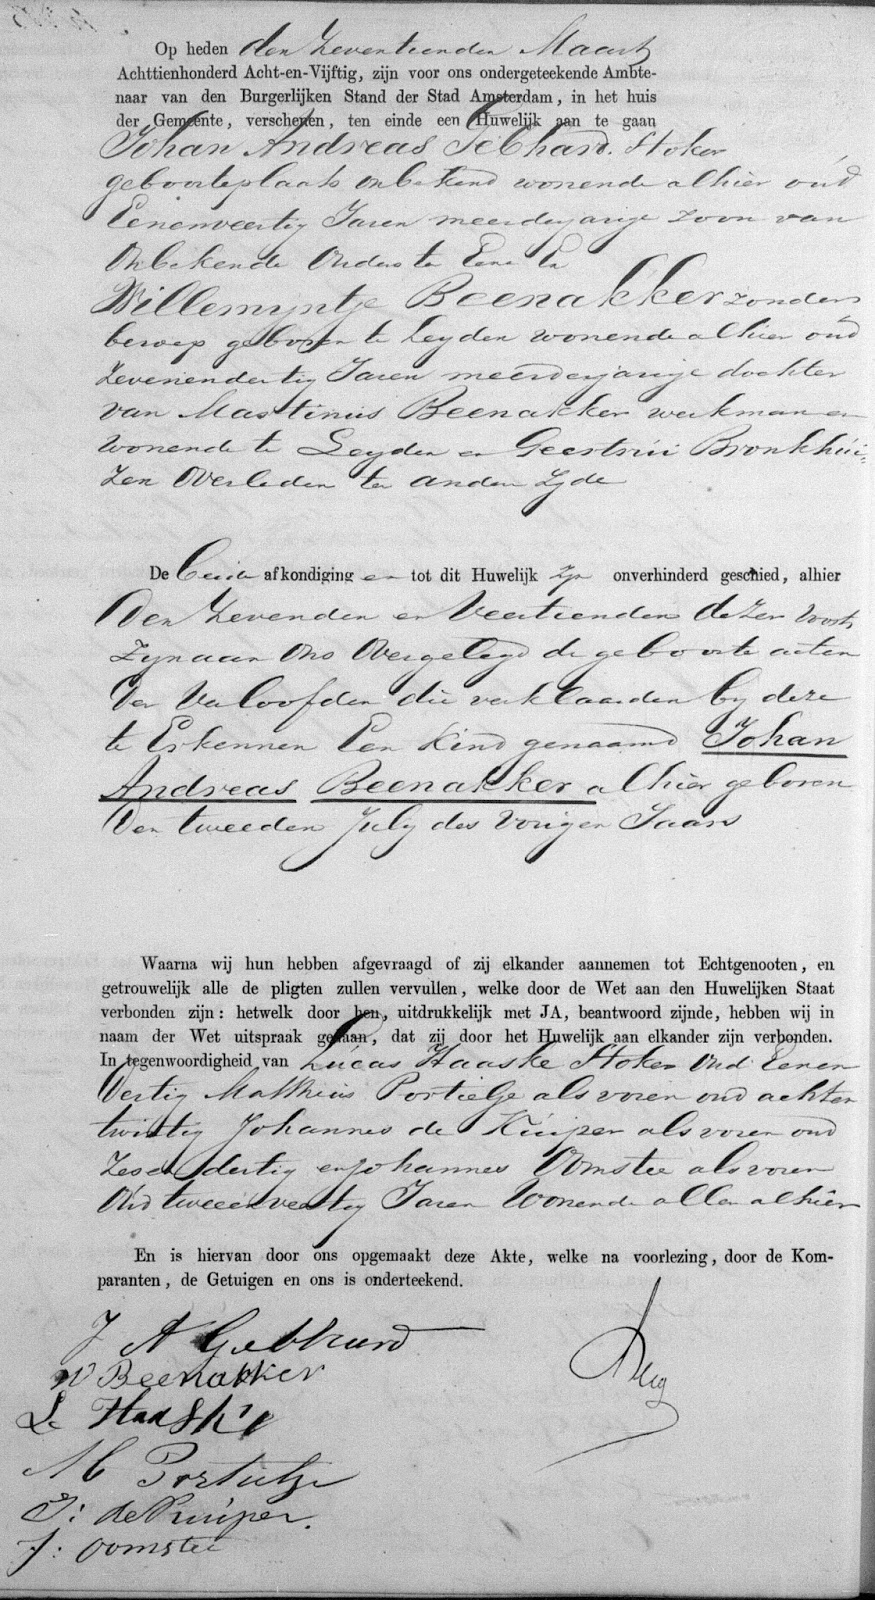 Op heden den Zeventienden Maart
Achttienhonderd Acht-en-Vijftig, zijn voor ons ondergeteekende Ambte-
naar van den Burgerlijken Stand der Stad Amsterdam, in het huis
der Gemeente, verschenen, ten einde een Huwelijk aan te gaan
Johan Andreas Gebhard. Stoker
geboorteplaats onbekend wonende alhier oud
Eenenveertig Jaren meerderjarige zoon van
Onbekende Ouders ter Eene En
Willemyntje Beenakker zonder
beroep geboren te Leyden wonende alhier oud
Zevenendertig Jaren meerderjarige dochter
van Martinus Beenakker werkman en
wonende te Leyden en Geertrui Bronkhui-
zen Overleden ter andere Zyde
De beide afkondiging en tot dit Huwelijk zyn onverhinderd geschied, alhier
Den Zevenden en Veertienden dezer voorts
Zyn aan Ons Overgelegd de geboorte acten
Der Verloofden die verklaarden by deze
te Erkennen Een Kind genaamd Johan
Andreas Beenakker alhier geboren
Den tweeden July des Vorigen Jaars
Waarna wij hun hebben afgevraagd of zij elkander aannemen tot Echtgenooten, en
getrouwelijk alle de pligten zullen vervullen, welke door de Wet aan den Huwelijken Staat
verbonden zijn: hetwelk door hen, uitdrukkelijk met JA, beantwoord zijnde, hebben wij in
naam der Wet uitspraak gedaan, dat zij door het Huwelijk aan elkander zijn verbonden.
In tegenwoordigheid van Lucas Haaske Stoker Oud Eenen
Vertig Mattheus Portielje als voren oud achten
twintig Johannes de Kuiper als voren oud
Zesendertig en Johannes Oomstee als voren
Oud tweeenveertig Jaren Wonende allen alhier
En is hiervan door ons opgemaakt deze Akte, welke na voorlezing, door de Kom-
paranten, de Getuigen en ons is onderteekend.
J A Gebhard
W Beenakker
L Haaske
M Portielje
J: de Kuiper.
J: Oomstee